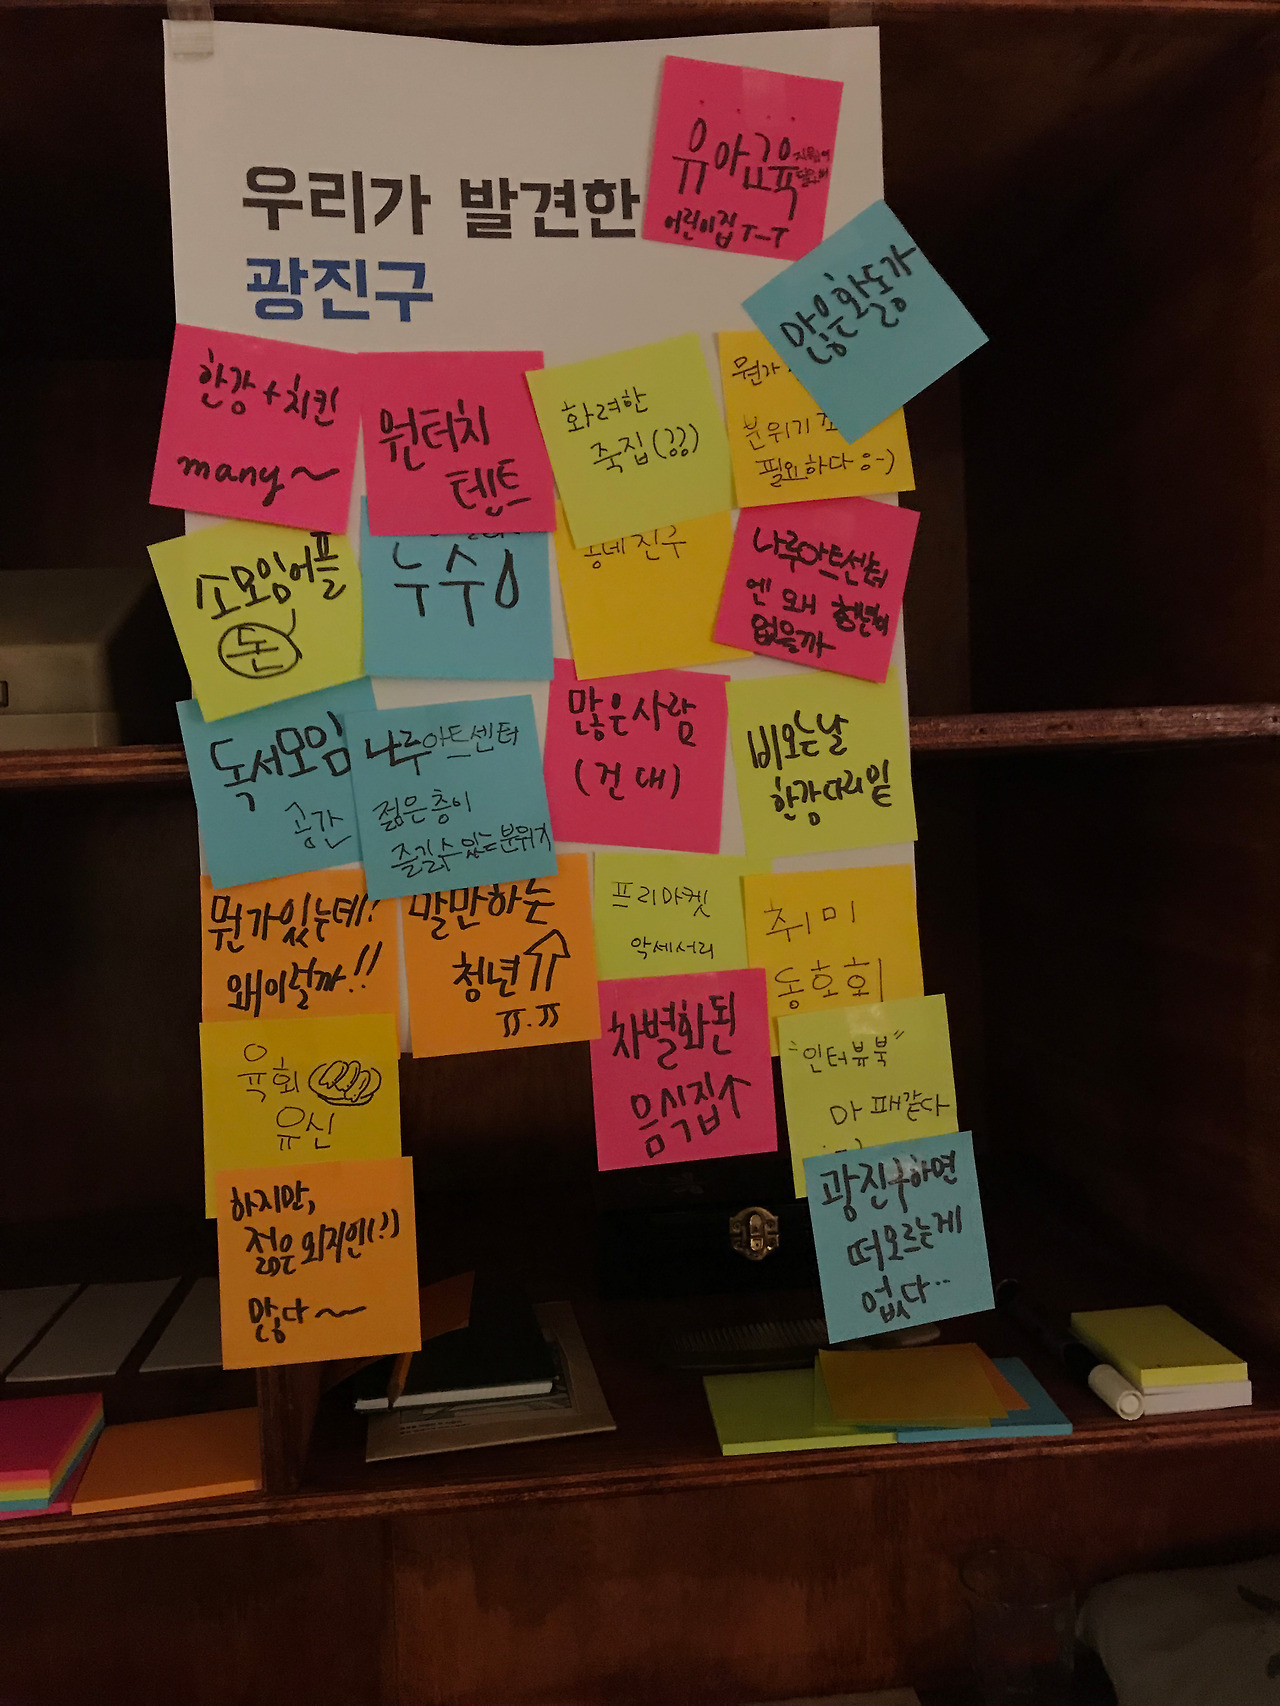 우리가 발견한
광진구
유아교육
어린이집 T-T
많은 활동가
한강+치킨
many~
원터치
텐트
화려한
죽집(??)
뭔가
분위기
필요하다
소모임어플
돈
누수
동네 친구
나루아트센터
엔 왜 청년이
없을까
독서모임
공간
나루아트센터
젊은층이
즐길수있는 분위기
많은 사람
(건대)
비오는날
한강다리 밑
뭔가있는데!?
왜이럴까!!
말만하는
청년
ㅠ.ㅠ
프리마켓
악세서리
취미
동호회
육회
유신
차별화된
음식집↑
"인터뷰북"
아 패같다
하지만,
젊은 외지인(?)
많다~~
광진구하면
떠오르는게
없다..